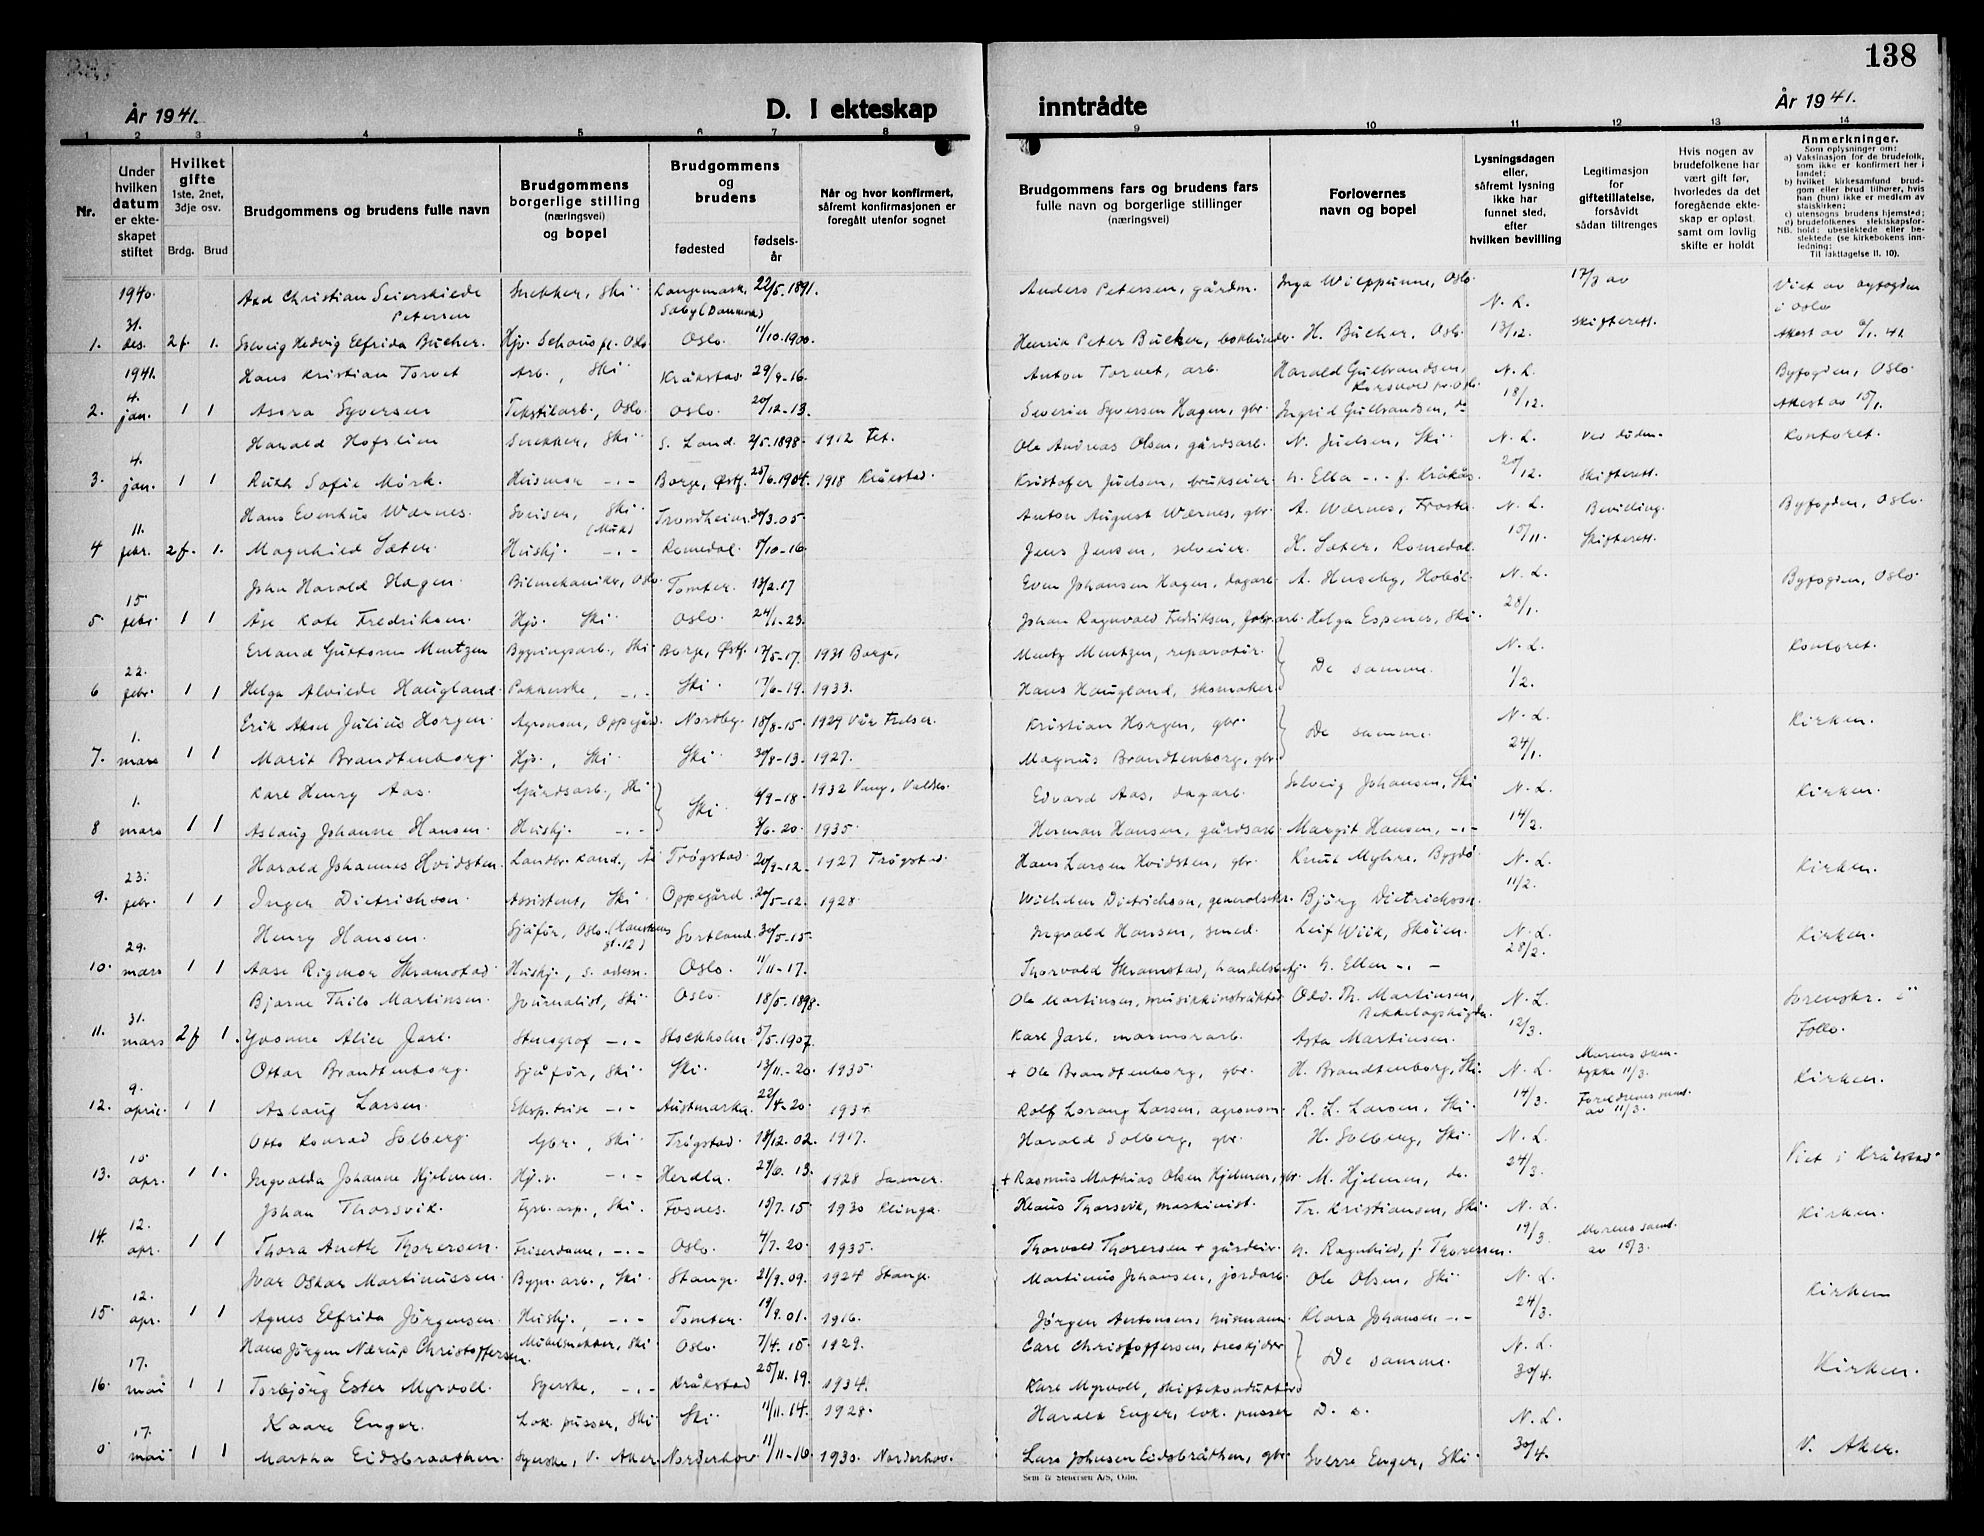 138
År 1941.
D. I ekteskap inntrådte
År 1941.
1 2 3 4 5 6 7 8 9 10 11 12 13 14
Nr.
Under hvilken datum er ekteskapet stiftet
Hvilket gifte
1ste, 2net, 3dje osv.
Brdg. Brud
Brudgommens og brudens fulle navn
Brudgommens borgerlige stilling (næringsvei) og bopel
Brudgommens og brudens
fødested
fødselsår
Når og hvor konfirmert, såfremt konfirmasjonen er foregått utenfor sognet
Brudgommens fars og brudens fars fulle navn og borgerlige stillinger (næringsvei)
Forlovernes navn og bopel
Lysningsdagen eller, såfremt lysning ikke har funnet sted, efter hvilken bevilling
Legitimasjon for giftetillatelse, forsåvidt sådan tiltrenges
Hvis nogen av brudefolkene har vært gift før, hvorledes da det foregående ekteskap er opløst samt om lovlig skifte er holdt
Anmerkninger.
Som oplysninger om:
a) Vaksinasjon for de brudefolk, som ikke er konfirmert her i landet;
b) hvilket kirkesamfund brudgom eller brud tilhører, hvis han (hun) ikke er medlem av statskirken;
c) utensogns brudens hjemsted;
d) brudefolkenes slektskapsforhold: ubeslektede eller beslektede (se kirkebokens innledning;
NB.
Til iakttagelse ll. 10).
1940. Axel Christian Seierskilde Petersen Snekker, Ski Langemark, Sæby (Danmark) 22/5.1891. Anders Petersen, gårdm. Inga Wilppunne, Oslo N. L. 17/7 av Viet av byfogden i Oslo
1. 31. des. 2 f. 1. Solveig Hedvig Elfrida Bucher. Hjv. Schous pl. Oslo Oslo. 11/10.1900. Henrik Peter Bucher, bokbinder. H. Bucher, Oslo 13/12. skifterett. Attest av 9/1. 41
1941. Hans Kristian Torvet Arb., Ski Kråkstad 29/9-16. Anton Torvet, arb. Harald Gulbrandsen, N. L. Byfogden, Oslo
2. 4. jan. 1 1 Asora Syversen Tekstilarb., Oslo. Oslo. 20/12-13. Severin Syversen Hagen, gbr. Ingrid Gulbrandsen, do 18/12. Attest av 15/1.
Harald Hofslien Snekker, Ski S. Land. 2/5.1898. 1912 Fet. Ole Andreas Olsen, gårdsarb. N. Juelsen, Ski N. L. Ved døden. Kontoret.
3. 4. jan. 1 1 Ruth Sofie Mørk. Husmor -.- Borge, Østf. 25/6.1904. 1918 Kråkstad. Kristofer Juelsen, brukseier h. Ella -.- f. Kråkås. 20/12. Skifterett.
Hans Eventius Wærnes. Sveiser, Ski (Muk) Trondheim 30/3.05. Anton August Wærnes, gbr. A. Wærnes, Frosta N. L. Bevilling. Byfogden, Oslo.
4 11. febr. 2 f. 1. Magnhild Sæter. Hushj. -.- Romedal. 8/10-16. Jens Jensen, selveier. H. Sæter, Romedal. 15/11. Skifterett.
John Harald Hagen. Bilmekaniker, Oslo. Tomter. 13/2.17 Even Johansen Hagen, dagarb. A. Huseby, Hobøl. N. L. Byfogden, Oslo.
5 15. febr. 1 1 Åse Kate Fredriksen. Hjv. Ski. Oslo. 24/1-23. Johan Ragnvald Fredriksen, fabr.arb. Helga Espenes, Ski. 28/1.
Erland Guttorm Mentzen Bygningsarb., Ski Borge, Østf. 17/5-17. 1931 Borge, Mentz Mentzen, reparatør. De samme. N. L. Kontoret.
6 22. febr. 1 1 Helga Alvilde Haugland. Pakkerske, -.- Ski 17/6-19. 1933. Hans Haugland, skomaker 1/2.
Erik Aksel Julius Horgen. Agronom, Oppegård. Nordby. 18/8-15. 1929 Vår Frelser. Kristian Horgen, gbr. De samme. N. L. Kirken.
7. 1. mars 1 1 Marit Brandtenborg. Hjv., Ski. Ski 30/8-13. 1927. Magnus Brandtenborg, gbr. 24/1.
Kåre Henry Aas. Gårdsarb., Ski Ski. 4/9-18. 1932 Vang, Valdres. Edvard Aas, dagarb. Solveig Johansen, Ski N. L. Kirken.
8 1. mars 1 1 Aslaug Johanne Hansen. Hushj. -.- 3/6-20. 1935. Herman Hansen, gårdsarb. Margit Hansen, -.- 14/2.
Harald Johannes Hvidsten. Landbr. kand., Ås Trøgstad. 20/9-12. 1927 Trøgstad. Hans Larsen Hvidsten, gbr. Knut Myhre, Bygdø. N. L. Kirken.
9. 23. febr. 1 1 Inger Dietrichson. Assistent, Ski Oppegård. 20/5-12. 1928. Wilhelm Dietrichson, generalsekr. Bjørg Dietrichson. 11/2.
Henry Hansen. Sjåfør, Oslo. Sortland. 30/5-15. Ingvald Hansen, smed. Leif Wiik, Skøien. N. L. Kirken.
10. 29. mars 1 1 Aase Rigmor Skramstad. Hushj., s. adresse. Oslo. 11/11-17. Thorvald Skramstad, handelsbetj. h. Ellen -.- 28/2.
Bjarne Thilo Martinsen. Journalist, Ski Oslo 18/5.1898. Ole Martinsen, musikkinstruktør Odd. Th. Martinsen, Bekkelagshøgda. N. L. Sorenskr. i
11. 31. mars 2 f 1. Yvonne Alice Jarl. Stenograf -.- Stockholm 5/5.1907. Karl Jarl, marmorarb. Asta Martinsen. 12/3. Follo.
Ottar Brandtenborg. Sjåfør, Ski. Ski. 13/11.-20. 1935. + Ole Brandtenborg, gbr. H. Brandtenborg, Ski N. L. Morens samtykke 11/3. Kirken.
12. 9. april. 1 1 Aslaug Larsen. Eksp.trise -.- Austmarka. 22/4-20. 1934 Rolf Lorang Larsen, agronom. R. L. Larsen, Ski. 14/3. Foreldrenes samt. av 11/3.
Otto Konrad Solberg. Gbr., Ski Trøgstad. 18/12.02. 1917. Harald Solberg, gbr. H. Solberg, Ski. N. L. Viet i Kråkstad
13. 15. apr. 1 1. Ingvalda Johanne Hjelmen. Hj.v. -.- Herdla. 29/6. 13. 1928 + Rasmus Mathias Olsen Hjelmen, gbr. M. Hjelmen, do. 24/3.
Johan Thorsvik. Fyrb. asp., Ski. Fosnes. 19/7.15. 1930 Klinga. Klaus Thorsvik, maskinist. Tr. Kristiansen, Ski. N. L. Kirken.
14. 12. apr. 1 1 Thora Anette Thoresen. Friserdame, -.- Oslo. 4/7.20. 1935. Thorvald Thoresen + gårdeier. h. Ragnhild, f. Thoresen. 19/3. Morens samt. av 15/3.
Ivar Oskar Martinussen. Bygn. arb., Ski. Stange. 21/9.09. 1924 Stange. Martinus Johansen, jordarb. Ole Olsen, Ski N. L. Kirken
15 12. apr. 1 1 Agnes Elfrida Jørgensen. Hushj. -.- Tomter. 19/9.01. 1916. Jørgen Antonsen, husmann. Klara Johansen -.- 24/3.
Hans Jørgen Nærup Christoffersen. Møbelsnekker, Ski. Oslo. 7/4.15 1929. Carl Christoffersen, treskjærer De samme. N. L. Kirken.
16. 17. mai 1 1 Torbjørg Ester Myrvoll. Syerske, -.- Kråkstad 25/11.19. 1934. Kåre Myrvoll, skiftekonduktør 30/4.
Kaare Enger. Lok. pusser, Ski Ski. 11/11.14. 1928. Harald Enger, lok. pusser D. s. N. L.
17. mai 1 1 Martha Eidsbraathen. Syerske, V. Aker Norderhov 11/11-16 1930. Norderhov. Lars Johnsen Eidsbråthen, gbr. Sverre Enger, Ski. 30/4. V. Aker.
Sem & Stenersen A/S, Oslo.